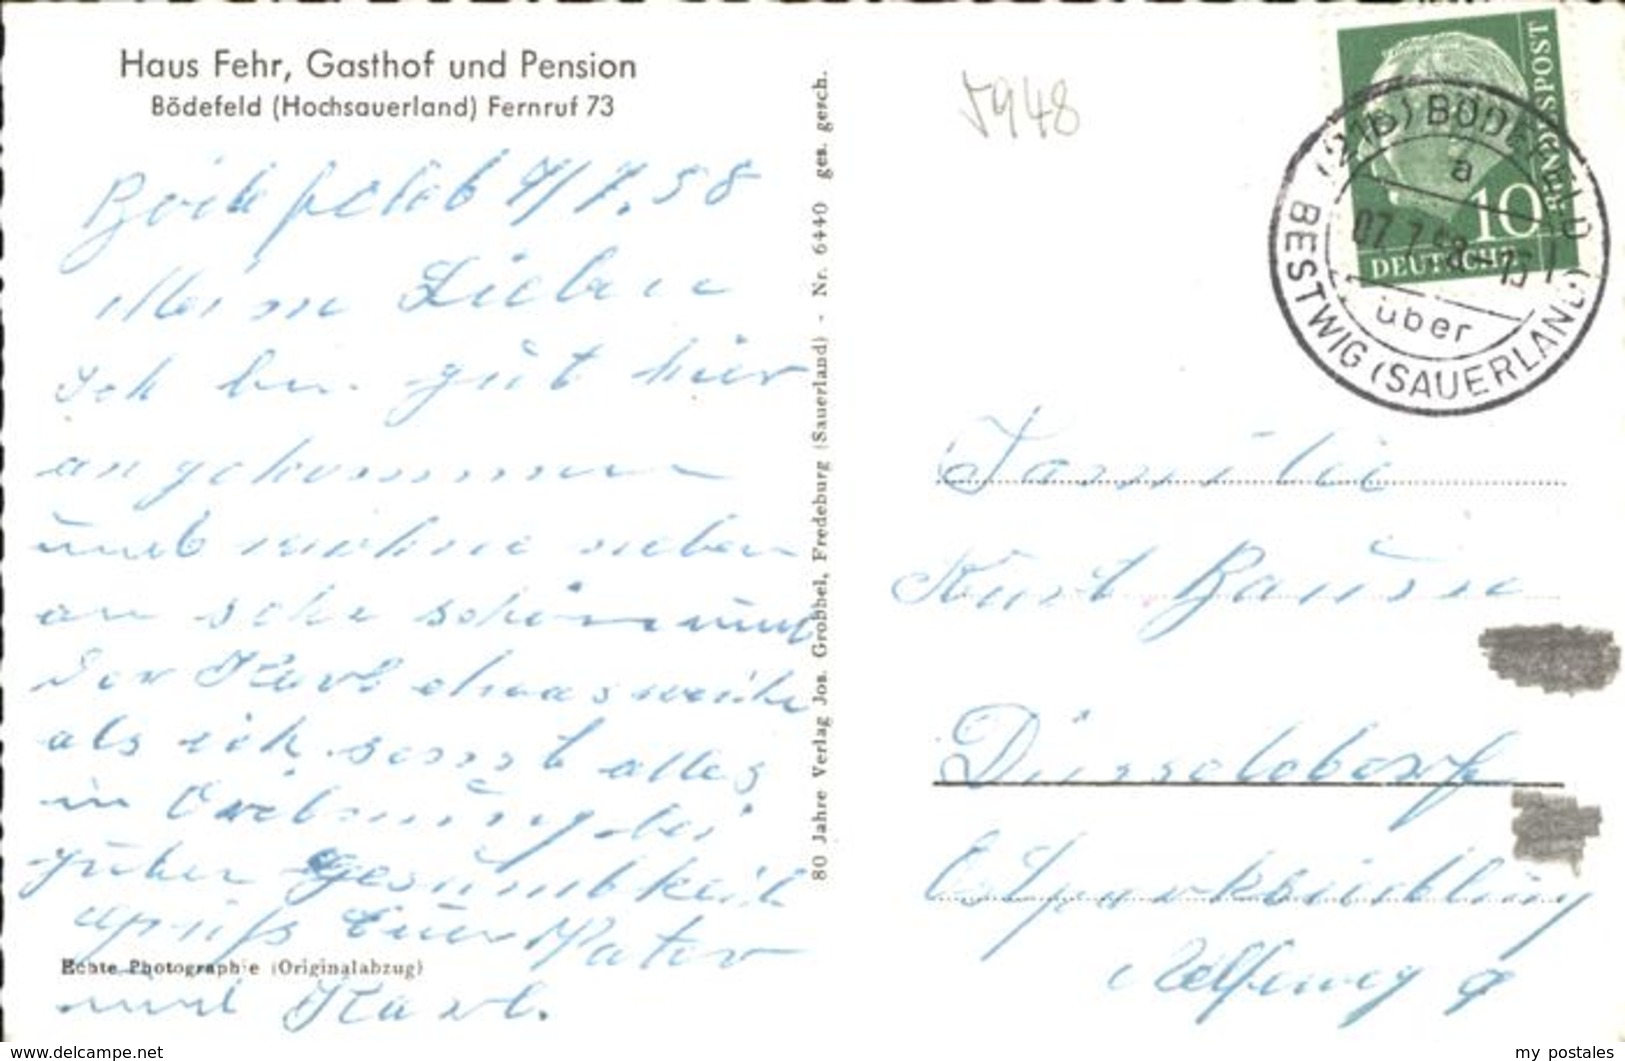 Haus Fehr, Gasthof und Pension
Bödefeld (Hochsauerland) Fernruf 73
Bödefeld 7/7.58
Meine Lieben
Ich bin gut hier
angekommen
und wohne neben
an sehr schön und
der Karl etwas weiter
als ich sonst alles
in Ordnung bei
guter Gesundheit
Gruß Euer Vater
und Karl.
Echte Photographie (Originalabzug)
80 Jahre Verlag Jos. Grobbel, Fredeburg (Sauerland) - Nr. 6440 ges. gesch.
5948
DEUTSCHE
BUNDESPOST
10
(21b) BÖDEFELD
a
07.7.58
über
BESTWIG (SAUERLAND)
Familie
Kurt
Düsseldorf
9
www.delcampe.net
my postales